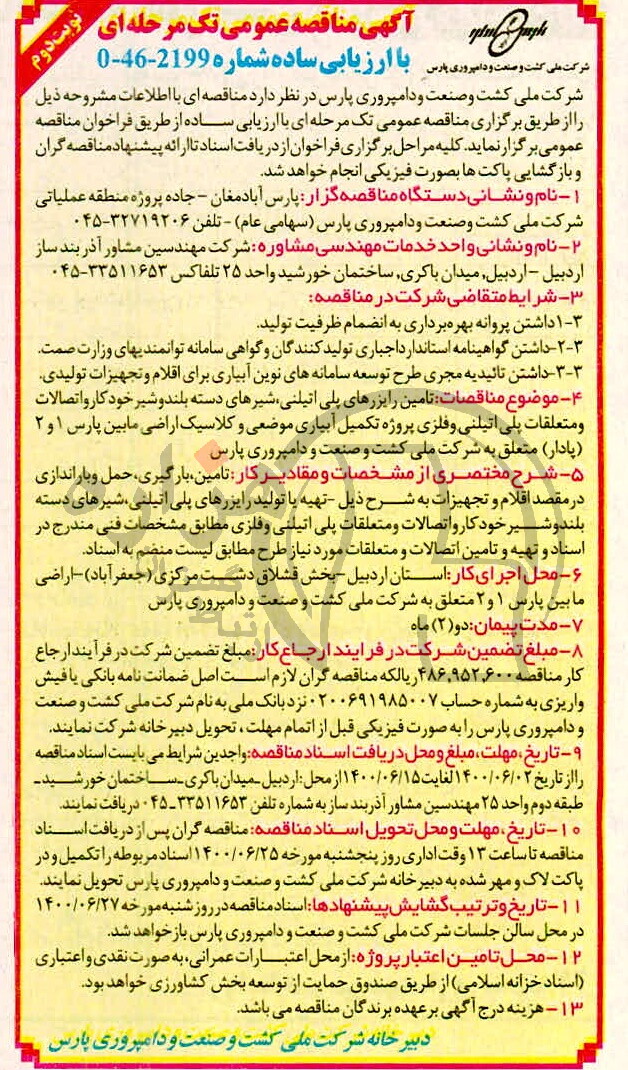 نوبت دوم
آگهی مناقصه عمومی تک مرحله ای
با ارزیابی ساده شماره 2199-46-0
پارس
شرکت ملی کشت و صنعت و دامپروری پارس
شرکت ملی کشت و صنعت و دامپروری پارس در نظر دارد مناقصه ای با اطلاعات مشروحه ذیل
را از طریق برگزاری مناقصه عمومی تک مرحله ای با ارزیابی ساده از طریق فراخوان مناقصه
عمومی برگزار نماید. کلیه مراحل برگزاری فراخوان از دریافت اسناد تا ارائه پیشنهاد مناقصه گران
و بازگشایی پاکت ها بصورت فیزیکی انجام خواهد شد.
۱- نام و نشانی دستگاه مناقصه گزار: پارس آباد مغان - جاده پروژه منطقه عملیاتی
شرکت ملی کشت و صنعت و دامپروری پارس (سهامی عام) - تلفن ۳۲۷۱۹۲۰۶-۰۴۵
۲- نام و نشانی واحد خدمات مهندسی مشاوره: شرکت مهندسین مشاور آذر بند ساز
اردبیل - اردبیل, میدان باکری, ساختمان خورشید واحد ۲۵ تلفاکس ۳۳۵۱۱۶۵۳-۰۴۵
۳- شرایط متقاضی شرکت در مناقصه:
۳-۱داشتن پروانه بهره برداری به انضمام ظرفیت تولید.
۳-۲-داشتن گواهینامه استاندارد اجباری تولید کنندگان و گواهی سامانه توانمندیهای وزارت صمت.
۳-۳-داشتن تائیدیه مجری طرح توسعه سامانه های نوین آبیاری برای اقلام و تجهیزات تولیدی.
۴- موضوع مناقصات: تامین رایزرهای پلی اتیلنی، شیرهای دسته بلند و شیر خودکار و اتصالات
و متعلقات پلی اتیلنی و فلزی پروژه تکمیل آبیاری موضعی و کلاسیک اراضی مابین پارس ۱ و ۲
(پادار) متعلق به شرکت ملی کشت و صنعت و دامپروری پارس
۵- شرح مختصری از مشخصات و مقادیر کار: تامین، بارگیری، حمل و باراندازی
در مقصد اقلام و تجهیزات به شرح ذیل -تهیه یا تولید رایزرهای پلی اتیلنی، شیرهای دسته
بلند و شیر خودکار و اتصالات و متعلقات پلی اتیلنی و فلزی مطابق مشخصات فنی مندرج در
اسناد و تهیه و تامین اتصالات و متعلقات مورد نیاز طرح مطابق لیست منضم به اسناد.
۶- محل اجرای کار: استان اردبیل - بخش قشلاق دشت مرکزی (جعفرآباد) - اراضی
ما بین پارس ۱ و ۲ متعلق به شرکت ملی کشت و صنعت و دامپروری پارس
۷- مدت پیمان: دو (۲) ماه
۸- مبلغ تضمین شرکت در فرایند ارجاع کار: مبلغ تضمین شرکت در فرآیند ارجاع
کار مناقصه ۴۸۶,۹۵۲,۶۰۰ریالکه مناقصه گران لازم است اصل ضمانت نامه بانکی یا فیش
واریزی به شماره حساب ۰۲۰۰۶۹۱۹۸۵۰۰۷ نزد بانک ملی به نام شرکت ملی کشت و صنعت
و دامپروری پارس را به صورت فیزیکی قبل از اتمام مهلت ، تحویل دبیرخانه شرکت نمایند.
۹- تاریخ، مهلت، مبلغ و محل دریافت اسناد مناقصه: واجدین شرایط می بایست اسناد مناقصه
را از تاریخ ۱۴۰۰/۰۶/۰۲ لغایت ۱۴۰۰/۰۶/۱۵ از محل: اردبیل ـ میدان باکری ـ ساختمان خورشید ـ
طبقه دوم واحد ۲۵ مهندسین مشاور آذربند ساز به شماره تلفن ۳۳۵۱۱۶۵۳-۰۴۵ دریافت نمایند.
۱۰- تاریخ، مهلت و محل تحویل اسناد مناقصه: مناقصه گران پس از دریافت اسناد
مناقصه تا ساعت ۱۳ وقت اداری روز پنجشنبه مورخه ۱۴۰۰/۰۶/۲۵ اسناد مربوطه را تکمیل و در
پاکت لاک و مهر شده به دبیرخانه شرکت ملی کشت و صنعت و دامپروری پارس تحویل نمایند.
۱۱- تاریخ و ترتیب گشایش پیشنهادها: اسناد مناقصه در روز شنبه مورخه ۱۴۰۰/۰۶/۲۷
در محل سالن جلسات شرکت ملی کشت و صنعت و دامپروری پارس باز خواهد شد.
۱۲- محل تامین اعتبار پروژه: از محل اعتبارات عمرانی، به صورت نقدی و اعتباری
(اسناد خزانه اسلامی) از طریق صندوق حمایت از توسعه بخش کشاورزی خواهد بود.
۱۳- هزینه درج آگهی بر عهده برندگان مناقصه می باشد.
دبیرخانه شرکت ملی کشت و صنعت و دامپروری پارس